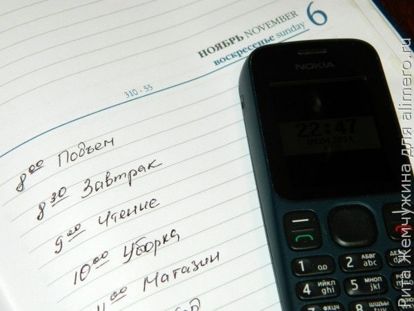 НОЯБРЬ NOVEMBER 6
воскресенье sunday
310-55
8 00 Подъем
8 30 Завтрак
9 00 Чтение
10 00 Уборка
11 00 Магазин
NOKIA
22:47
1
2 abc
4 ghi
5 jkl
Рита Жемчужина для alimero.ru